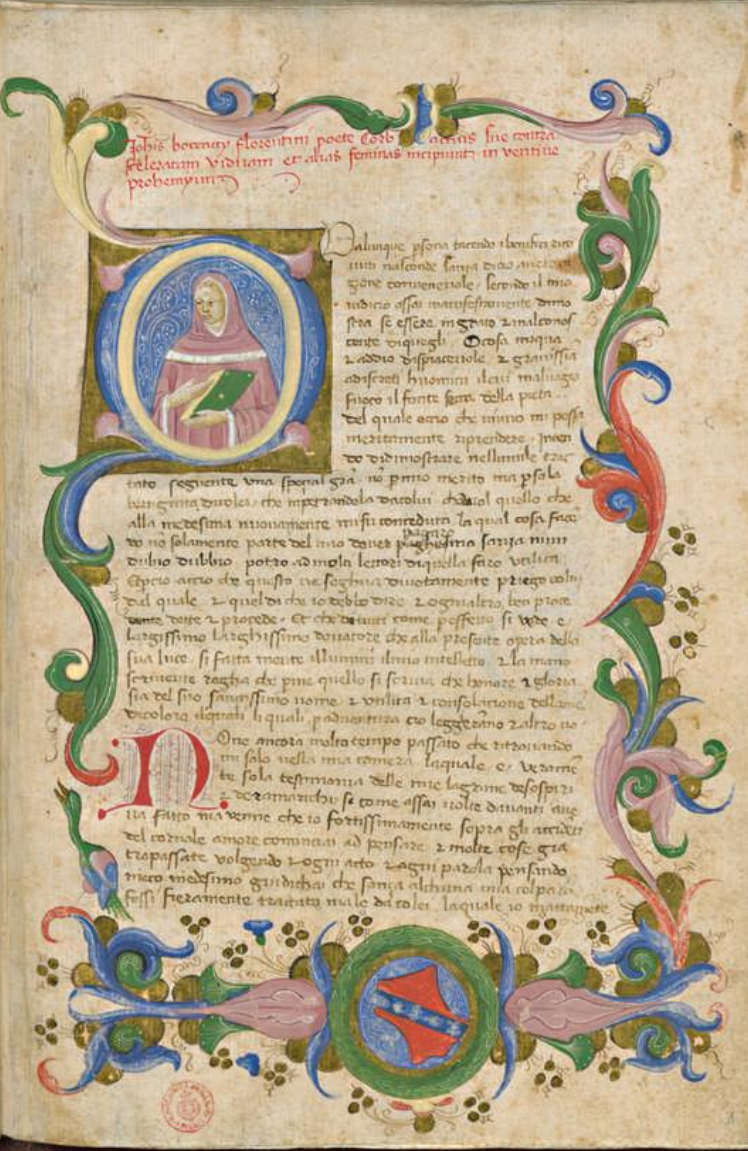 Johis boccacij florentini poete Corbacius siue contra
sceleratam viduam et alias feminas incipiunt in
prohemyum
Qalunque psona tacendo i benifici rice
uuti nasconde sanza di cio auere ca
gione conueneuole secondo il mio
iudicio assai manifestamente dimo
stra se essere ingrato & mal conos
cente di quegli O cosa iniqua
& addio dispiaceuole & grauissia
a discreti huomini il cui maluagio
fuoco il fonte secca della pieta
del quale acio che niuno mi possa
meritamente riprendere Inten
do didimostrare nellumile trac
tato seguente una spezial gra no p mio merito ma p sola
benignita di colei che inpetrandola da colui che uol quello che
alla medesima nuouamente mi fu conceduta la qual cosa face
do no solamente parte del mio douer ma sanza niun
dubio dubbio potro ad molti lectori di quella fare utilita
Epcio accio che questo ne seghua diuotamente priego colui
dal quale & quel di che io debbo dire & ogni altro ben proce
dette & procede Et che di tutti come p effetto si uede e
largissimo larghissimo donatore che alla presente opera della
sua luce si fatta mente illumini il mio intelletto & la mano
scriuente regha che p me quello si scriua che honore & gloria
sia del suo santissimo nome & utilita & consolatione dell
di coloro li quali p aduentura cio leggerano & altro no
None ancora molto tempo passato che ritrouando
mi solo nella mia camera la quale e ueramē
te sola testimonia delle mie lagrime de sospiri
& de ramarichi si come assai uolte dauanti aue
ua fatto mauenne che io fortissimamente sopra gli accideti
del carnale amore cominciai ad pensare & molte cose gia
trapassate volgendo & ogni atto & ogni parola pensando
meco medesimo giudichai che sanza alchuna mia colpa io
fossi fieramente tractato male da colei la quale io mattamete